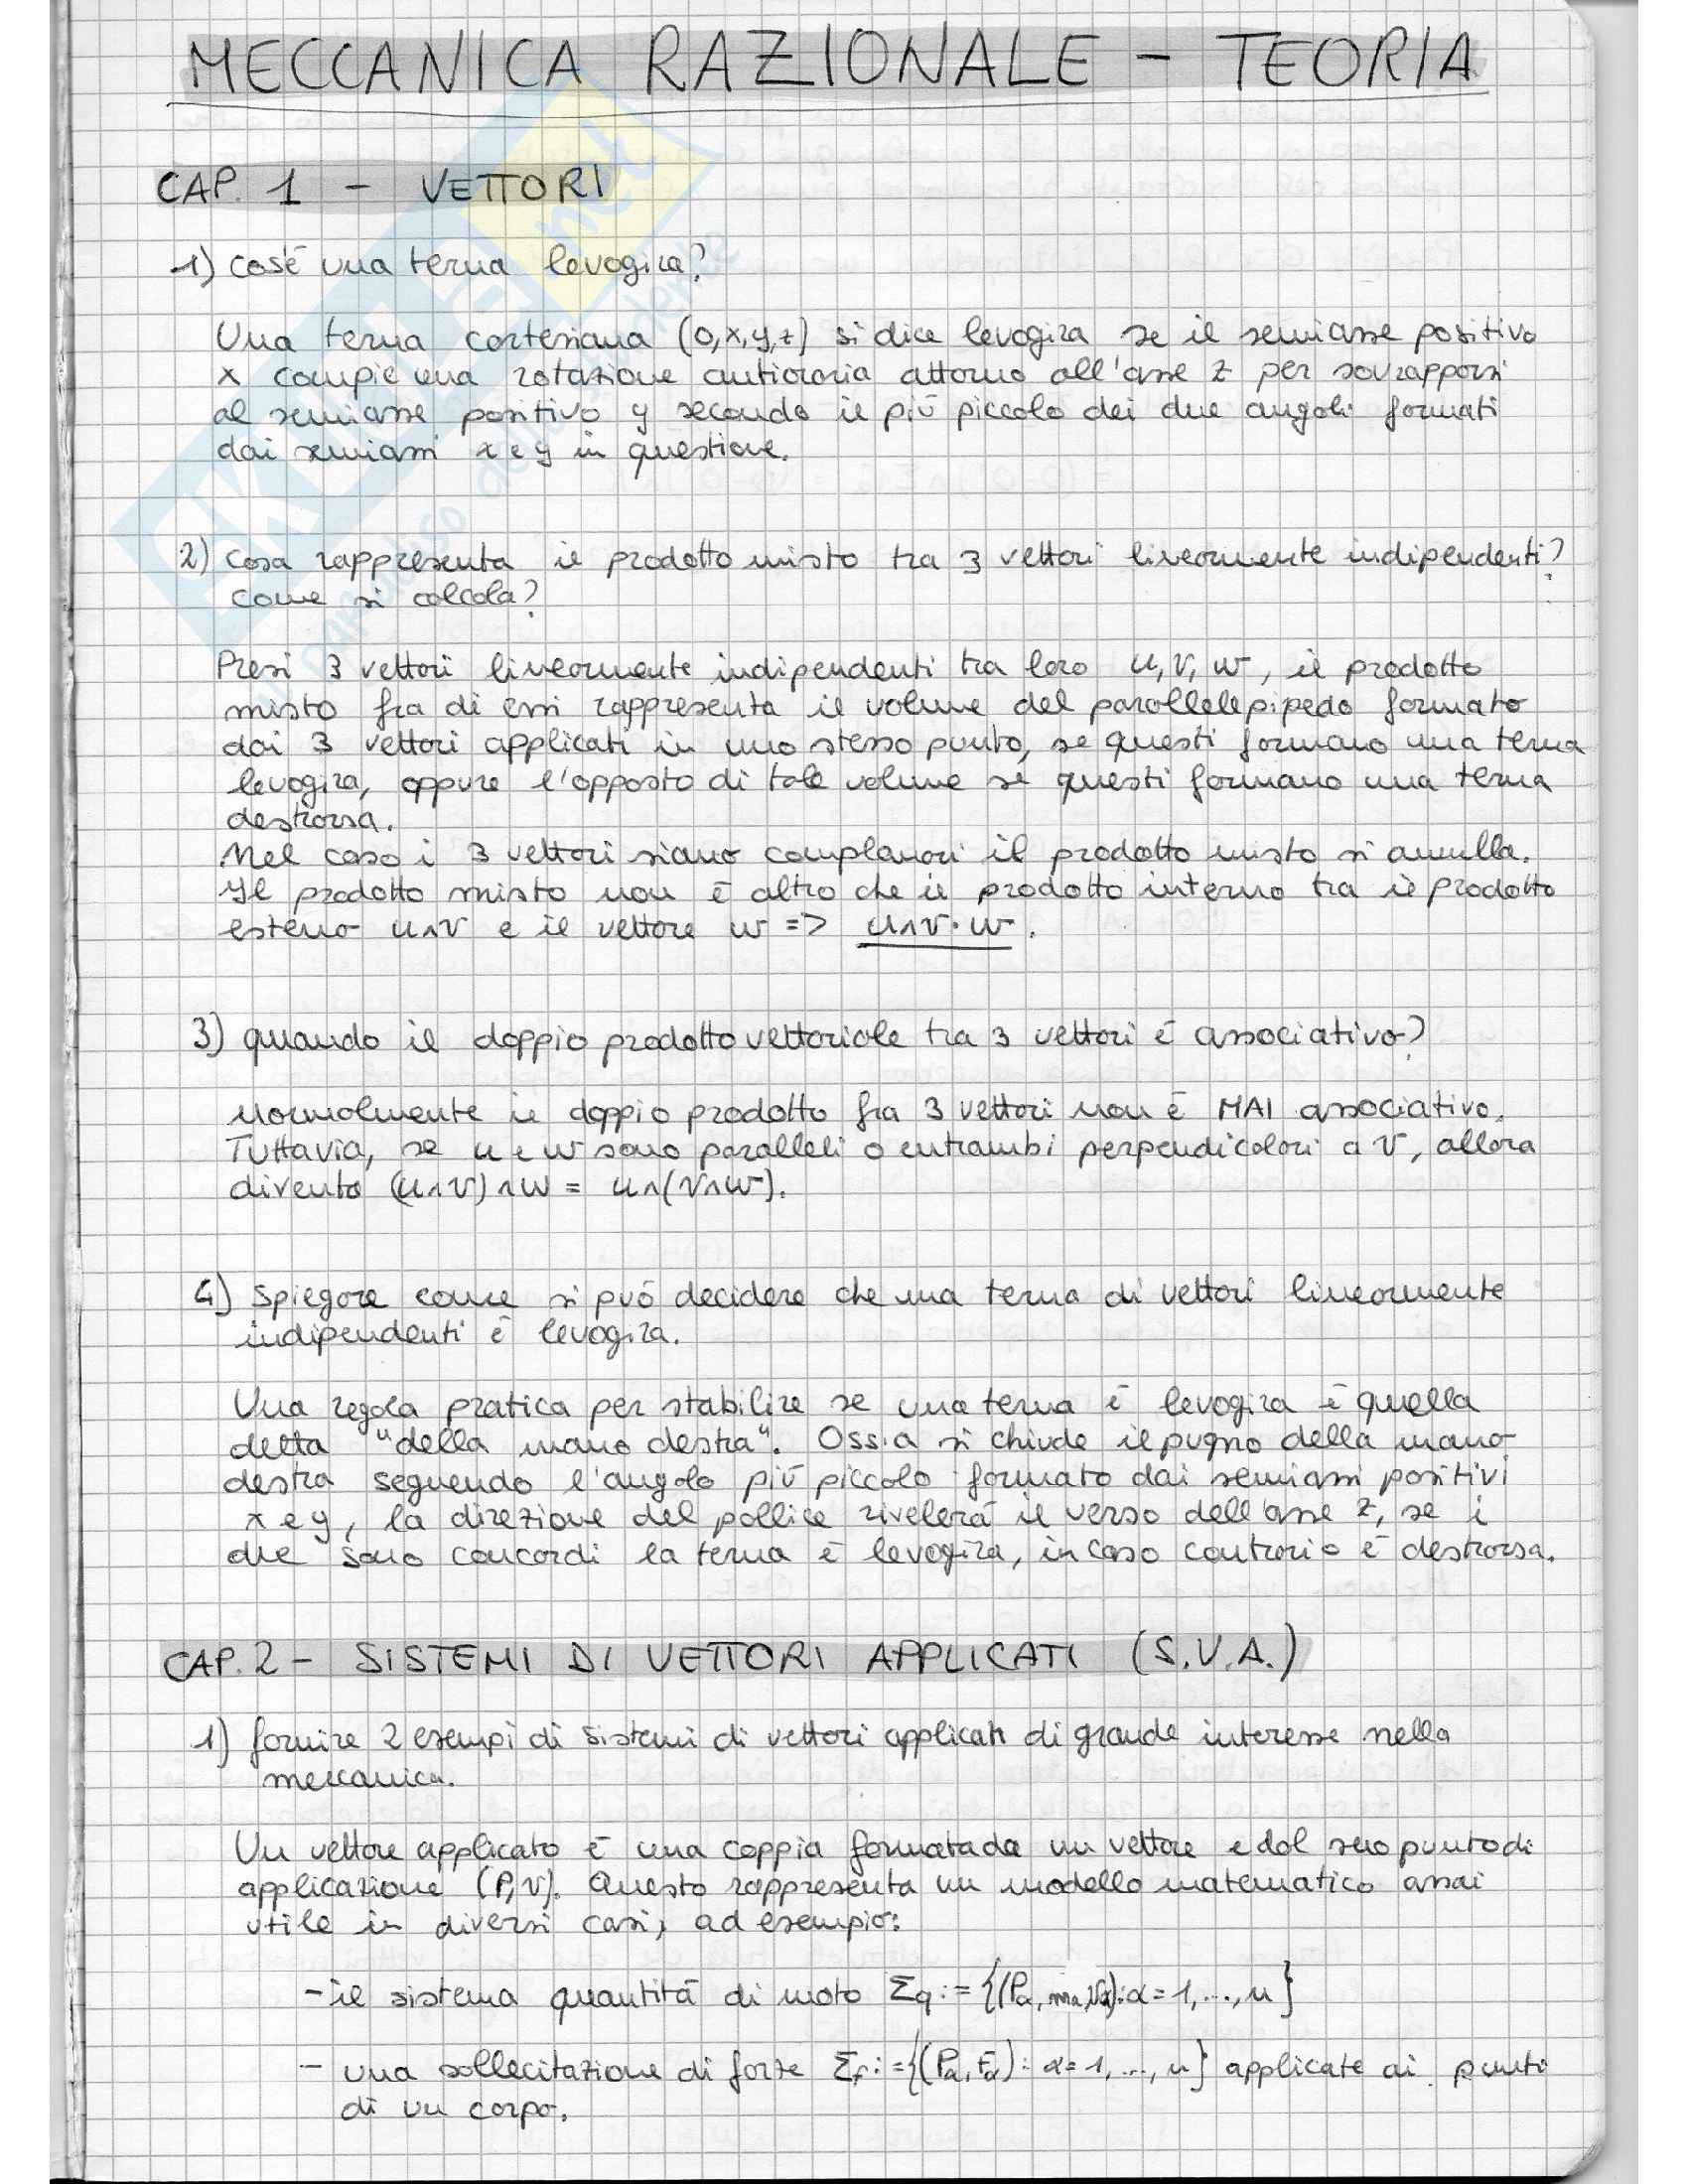 MECCANICA RAZIONALE - TEORIA
CAP. 1 - VETTORI
1) cos'è una terna levogira?
Una terna cartesiana (O,x,y,z) si dice levogira se il semiasse positivo
x compie una rotazione antioraria attorno all'asse z per sovrapporsi
al semiasse positivo y secondo il più piccolo dei due angoli formati
dai semiassi x e y in questione.
2) cosa rappresenta il prodotto misto tra 3 vettori linearmente indipendenti?
come si calcola?
Presi 3 vettori linearmente indipendenti tra loro u, v, w, il prodotto
misto fra di essi rappresenta il volume del parallelepipedo formato
dai 3 vettori applicati in uno stesso punto, se questi formano una terna
levogira, oppure l'opposto di tale volume se questi formano una terna
destrorsa.
Nel caso i 3 vettori siano complanari il prodotto misto si annulla.
Il prodotto misto non è altro che il prodotto interno tra il prodotto
esterno u∧v e il vettore w => u∧v·w.
3) quando il doppio prodotto vettoriale tra 3 vettori è associativo?
normalmente il doppio prodotto fra 3 vettori non è MAI associativo.
Tuttavia, se u e w sono paralleli o entrambi perpendicolari a v, allora
diventa (u∧v)∧w = u∧(v∧w).
4) Spiegare come si può decidere che una terna di vettori linearmente
indipendenti è levogira.
Una regola pratica per stabilire se una terna è levogira è quella
detta "della mano destra". Ossia si chiude il pugno della mano
destra seguendo l'angolo più piccolo formato dai semiassi positivi
x e y, la direzione del pollice rivelerà il verso dell'asse z, se i
due sono concordi la terna è levogira, in caso contrario è destrorsa.
CAP. 2 - SISTEMI DI VETTORI APPLICATI (S.V.A.)
1) fornire 2 esempi di sistemi di vettori applicati di grande interesse nella
meccanica.
Un vettore applicato è una coppia formata da un vettore e dal suo punto di
applicazione (P,v). Questo rappresenta un modello matematico assai
utile in diversi casi, ad esempio:
- il sistema quantità di moto Σq := {(Pα, mαvα): α = 1, ..., n}
- una sollecitazione di forze ΣF := {(Pα, Fα): α = 1, ..., n} applicate ai punti
di un corpo.